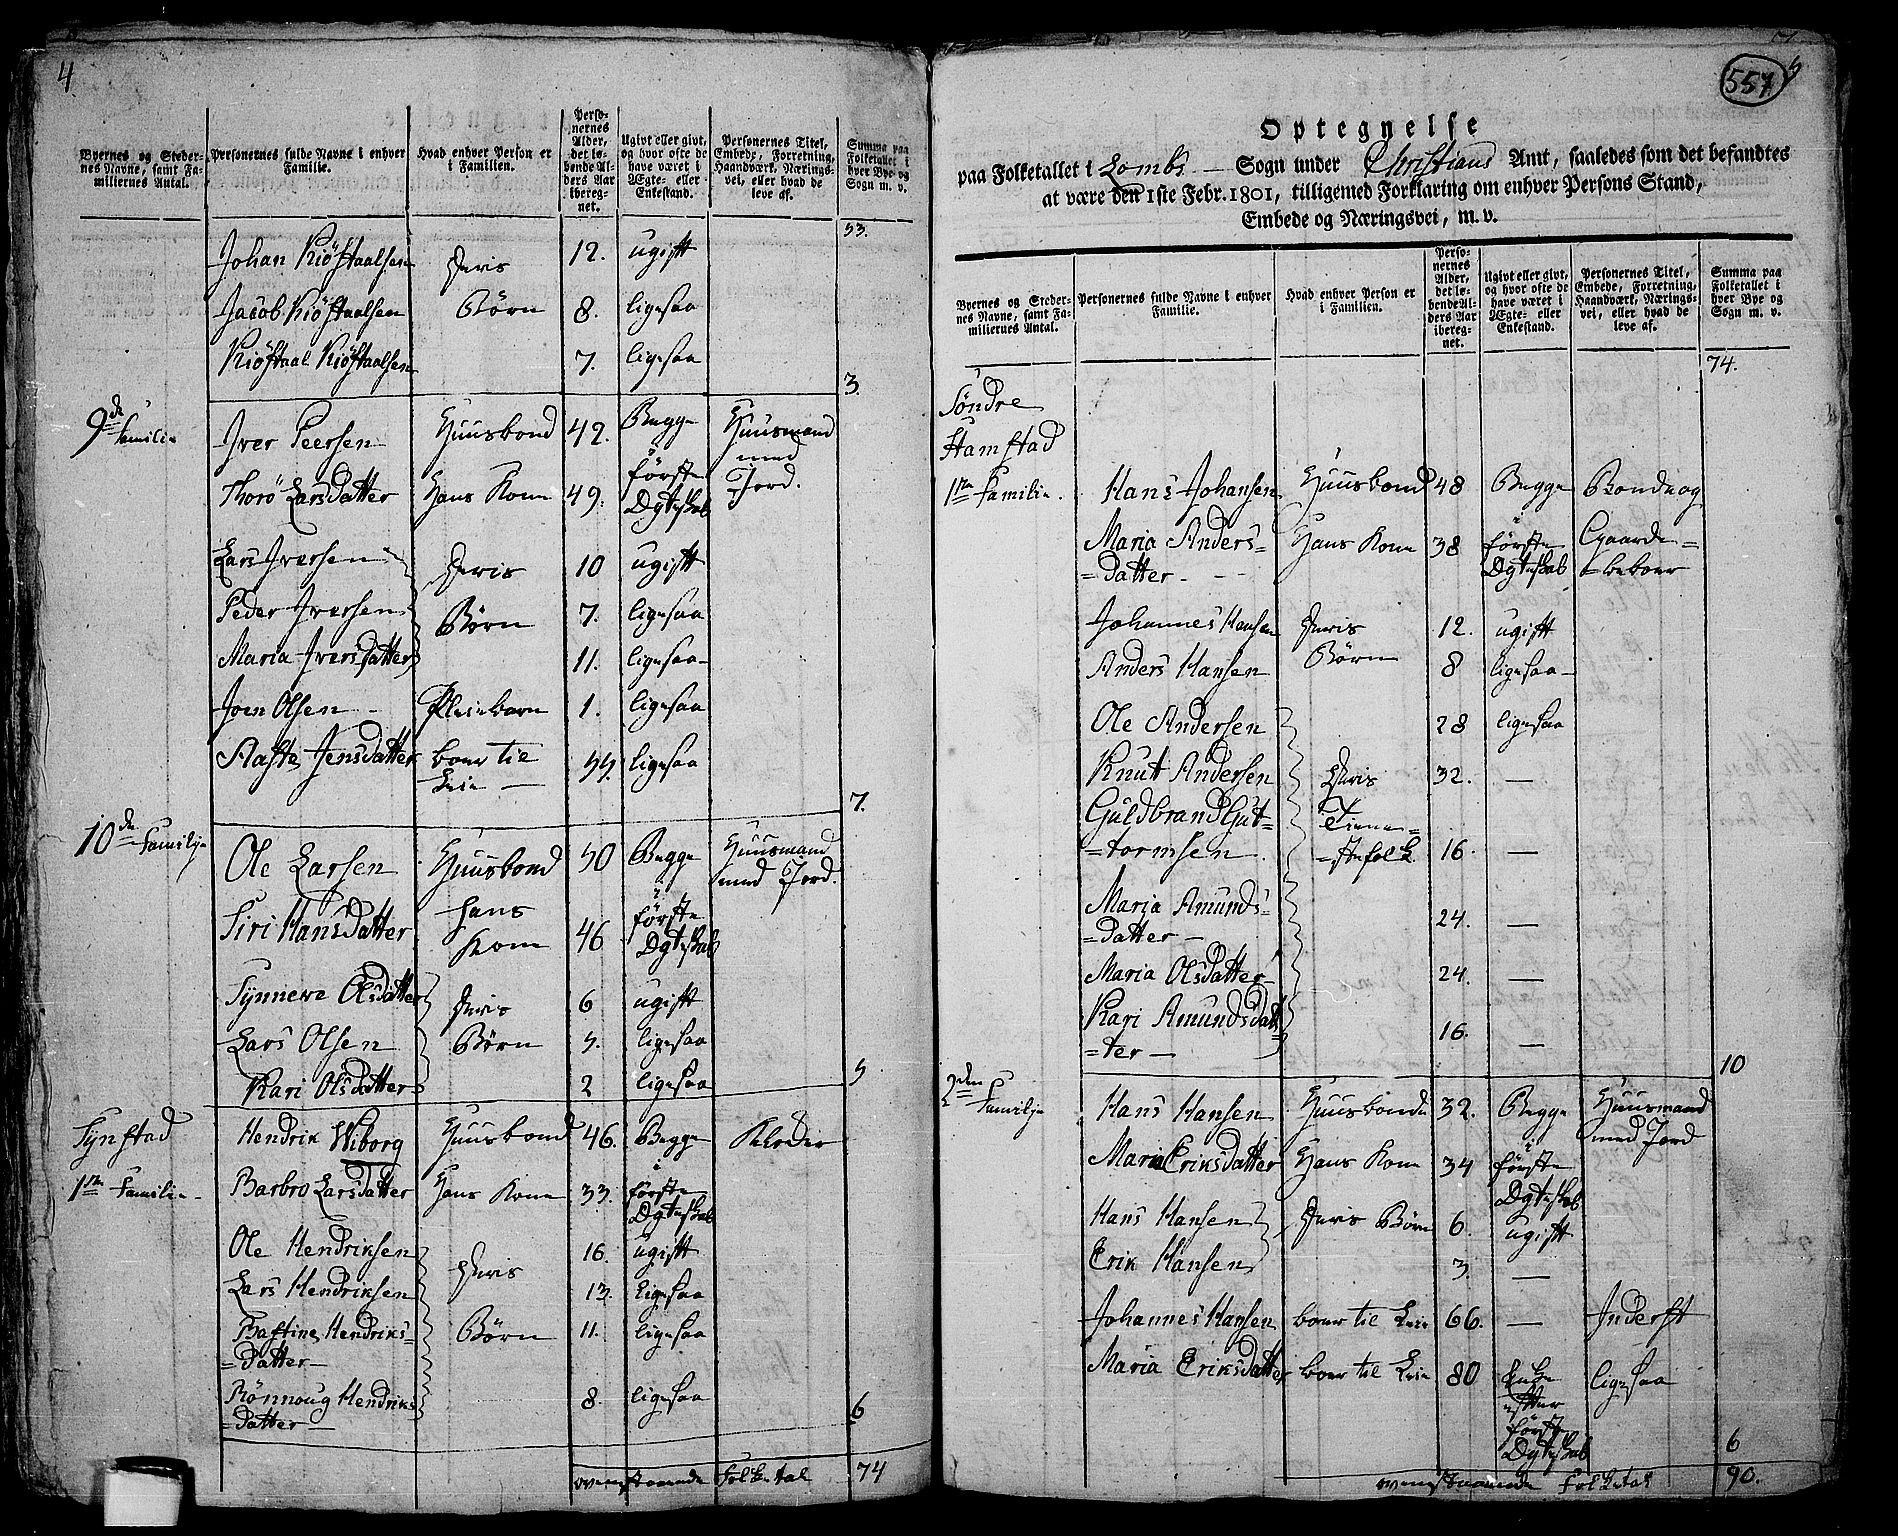 4
Byernes og Steder-
nes Navne, samt Fa-
miliernes Antal.
Personernes fulde Navne i enhver
Familie.
Hvad enhver Person er
i Familien.
Perso-
nernes
Alder,
det lø-
bende Al-
ders Aar
ibereg-
net.
Ugivt eller givt,
og hvor ofte de
have været i
Ægte- eller
Enkestand.
Personernes Titel,
Embede, Forretning,
Haandværk, Nærings-
vei, eller hvad de
leve af.
Summa paa
Folketallet i
hver Bye og
Sogn m. v.
53.
Johan Kiöstaalsen 12. ugift
Deris
Jacob Kiöstaalsen Börn 8. ligesaa
Kiöstaal Kiöstaalsen 7. ligesaa
3.
9de Familie
Iver Peersen Huusbond 42. Begge Huusmand
med
Thorö Larsdatter Hans Kone 49. i första Jord.
Egteskab
Lars Iversen Deris 10 ugift
Peder Iversen Börn 7. ligesaa
Maria Iversdatter 11. ligesaa
Joen Olsen Pleiebarn 1. ligesaa
Aaste Jensdatter boer til 54. ligesaa
Leie
7.
10de Familie
Ole Larsen Huusbond 50 Begge Huusmand
med Jord.
Siri Hansdatter hans Kone 46 i förste
Egteskab
Synneve Olsdatter Deris 6 ugift
Lars Olsen Börn 5. ligesaa
Kari Olsdatter 2 ligesaa
5
Synstad
Hendrik Wiborg Huusbond 46. Begge
1ste Familie
Barbro Larsdatter Hans Kone 33. i förste
Egteskab
Ole Hendriksen 16. ugift
Deris
Lars Hendriksen 13. ligesaa
Bastine Hendriks= Börn 11. ligesaa
=datter
Rönnoug Hendriks 8. ligesaa
=datter
6
ovenstaaende Folketal 74
557
5
Optegnelse
paa Folketallet i Lombs Sogn under Christians Amt, saaledes som det befandtes
at være den 1ste Febr. 1801, tilligemed Forklaring om enhver Persons Stand,
Embede og Næringsvei, m. v.
Byernes og Steder-
nes Navne, samt Fa-
miliernes Antal.
Personernes fulde Navne i enhver
Familie.
Hvad enhver Person er
i Familien.
Perso-
nernes
Alder,
det lø-
bende Al-
ders Aar
ibereg-
net.
Ugivt eller givt,
og hvor ofte de
have været i
Ægte- eller
Enkestand.
Personernes Titel,
Embede, Forretning,
Haandværk, Nærings-
vei, eller hvad de
leve af.
Summa paa
Folketallet i
hver Bye og
Sogn m. v.
74.
Söndre
Hamstad
1ste Familie.
Hans Johansen Huusbond 48 Begge Bonde og
Maria Anders= Hans Kone 38 i förste Gaarde=
=datter Egteskab =beboer
Johannes Hansen Deris 12. ugift
Anders Hansen Börn 8 ligesaa
Ole Andersen 28 ligesaa
Knut Andersen Deris 32. —
Guldbrand Gut= Tiene=
=tormsen =stefolk 16. —
Marja Amunds= 24. —
=datter
Maria Olsdatter 24. —
Kari Amundsdat= 16. —
=ter
10
2den Familje
Hans Hansen Huusbonde 32. Begge Huusmand
med Jord
Maria Eriksdatter Hans Kone 34 i förste
Egteskab
Hans Hansen Deris Börn 6. ugift
Erik Hansen 3. —
Johannes Hansen boer til Leie 66. — Inderst
Maria Eriksdatter boer til Leie 80 Enke ligesaa
efter
förste
Egteskab
6
ovenstaaende Folketal 90.